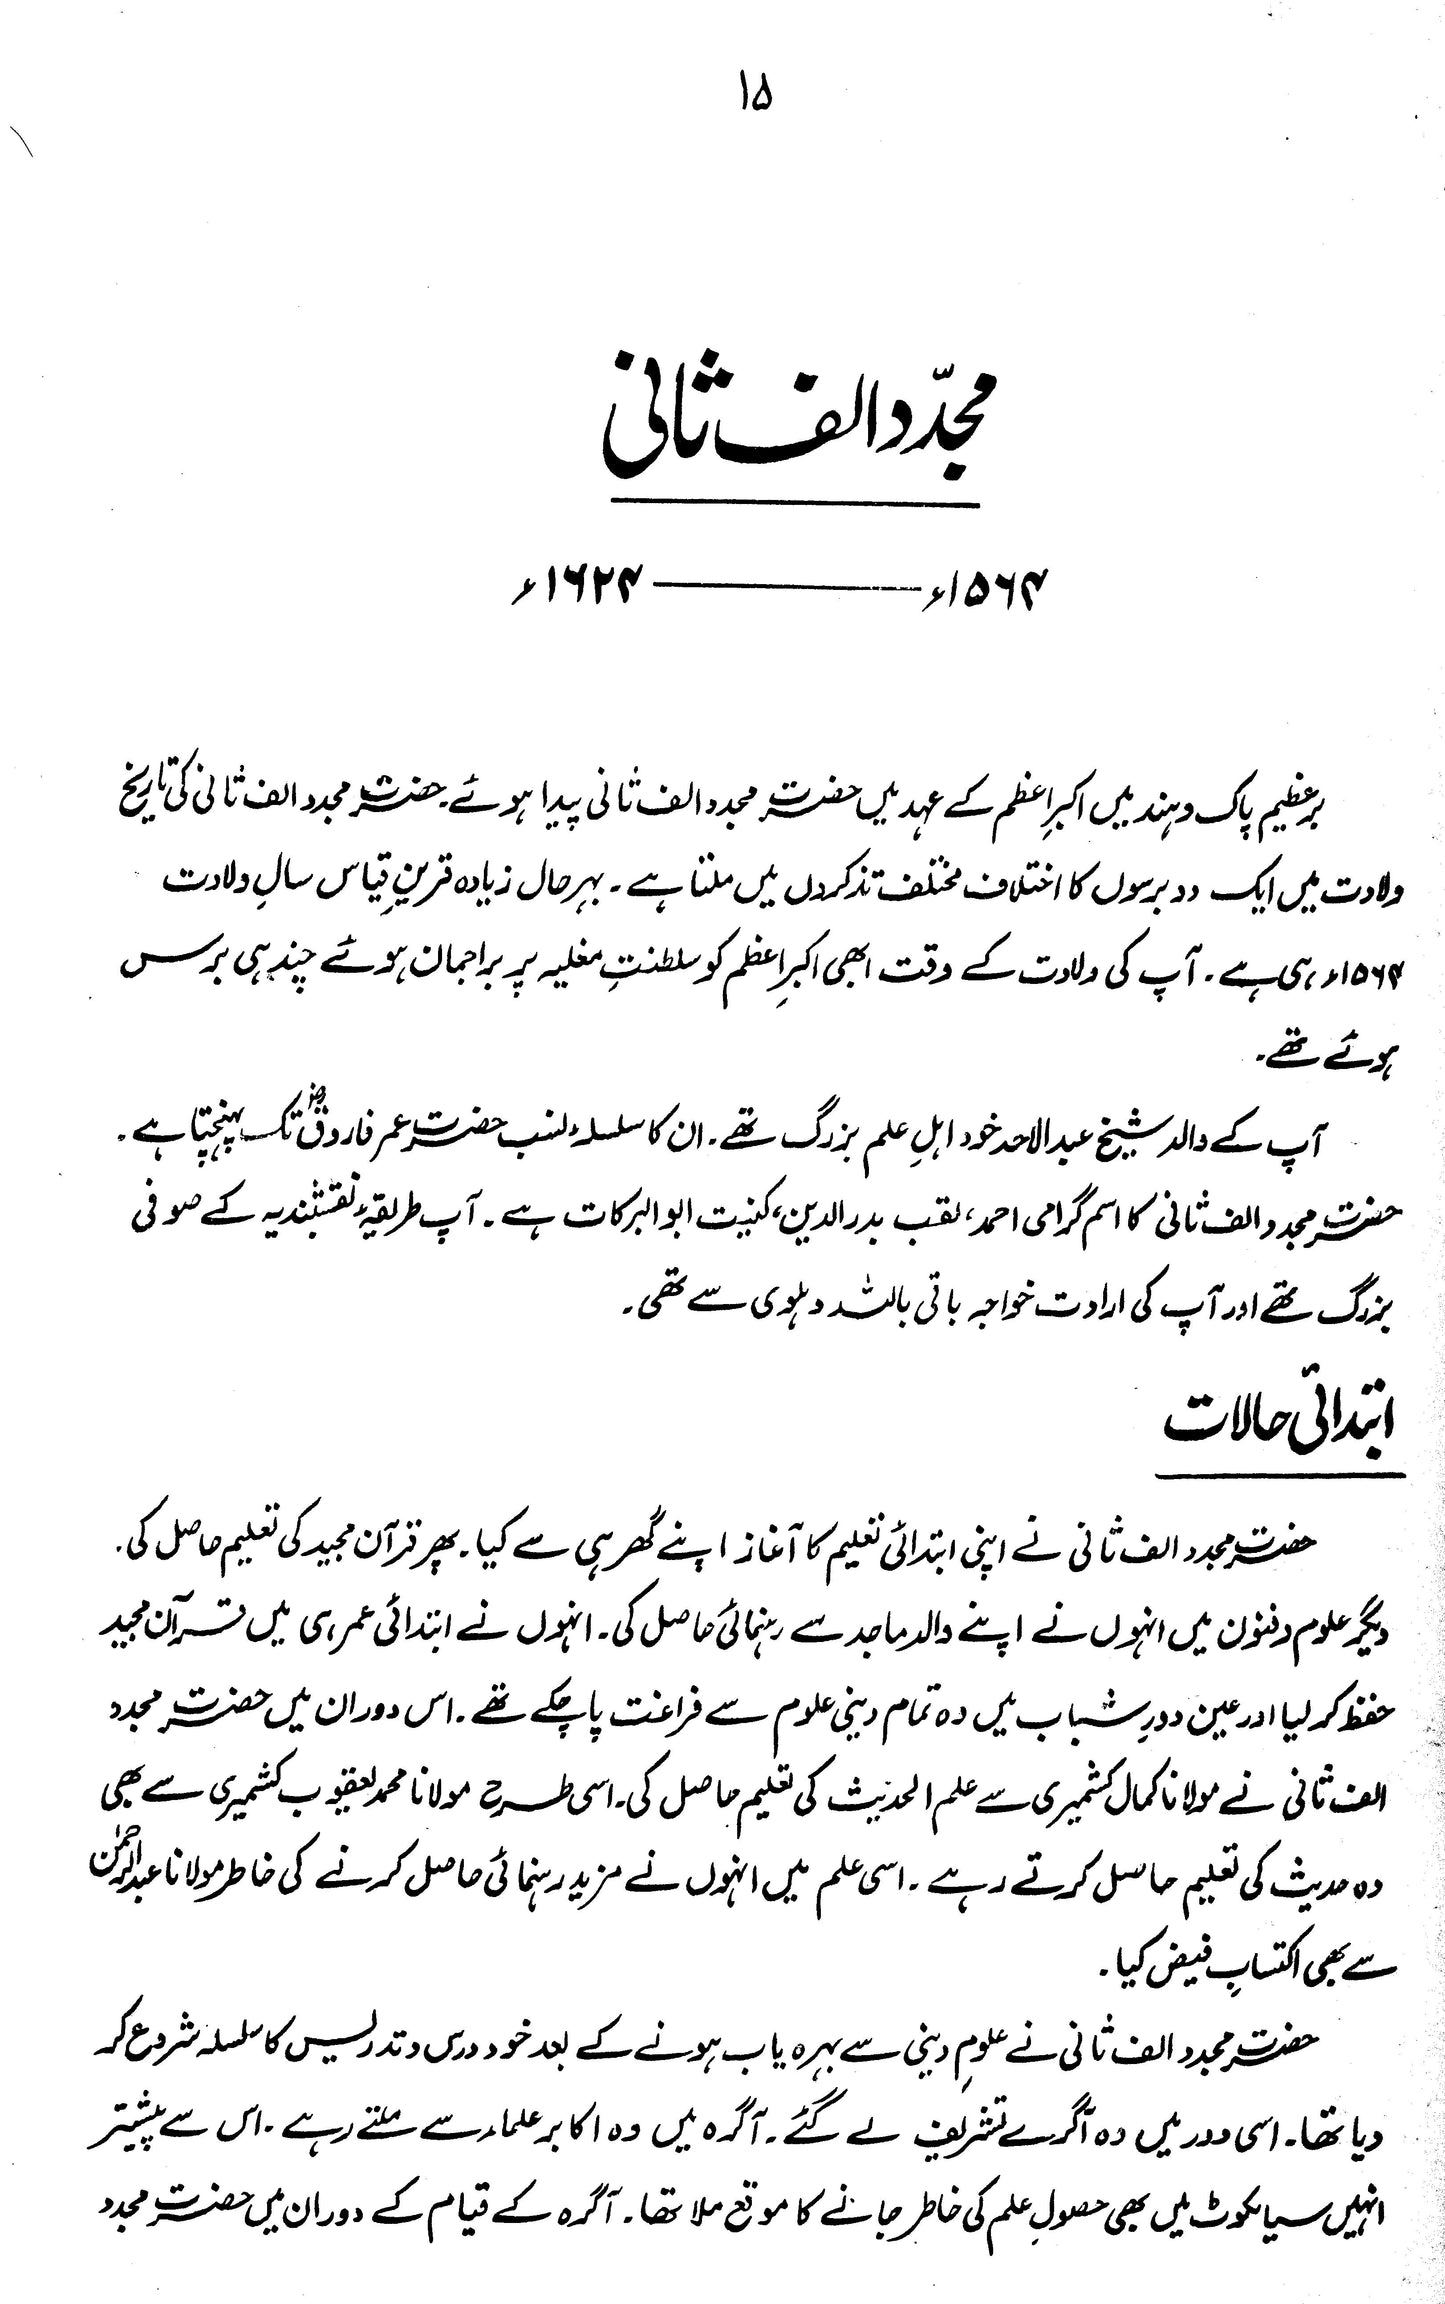 ۱۵
مجدّد الف ثانی
۱۵۶۴ء ——— ۱۶۲۴ء
برعظیم پاک و ہند میں اکبرِ اعظم کے عہد میں حضرت مجدد الف ثانی پیدا ہوئے۔ حضرت مجدد الف ثانی کی تاریخ
ولادت میں ایک دو برسوں کا اختلاف مختلف تذکروں میں ملتا ہے۔ بہرحال زیادہ قرینِ قیاس سالِ ولادت
۱۵۶۴ء ہی ہے۔ آپ کی ولادت کے وقت ابھی اکبرِ اعظم کو سلطنتِ مغلیہ پر براجمان ہوئے چند ہی برس
ہوئے تھے۔
آپ کے والد شیخ عبدالاحد خود اہلِ علم بزرگ تھے۔ ان کا سلسلۂ نسب حضرت عمر فاروقؓ تک پہنچتا ہے۔
حضرت مجدد الف ثانی کا اسم گرامی احمد، لقب بدرالدین، کنیت ابوالبرکات ہے۔ آپ طریقۂ نقشبندیہ کے صوفی
بزرگ تھے اور آپ کی ارادت خواجہ باقی باللہ دہلوی سے تھی۔
ابتدائی حالات
حضرت مجدد الف ثانی نے اپنی ابتدائی تعلیم کا آغاز اپنے گھر ہی سے کیا۔ پھر قرآن مجید کی تعلیم حاصل کی۔
دیگر علوم و فنون میں انہوں نے اپنے والد ماجد سے رہنمائی حاصل کی۔ انہوں نے ابتدائی عمر ہی میں قرآن مجید
حفظ کر لیا اور عین دورِ شباب میں وہ تمام دینی علوم سے فراغت پا چکے تھے۔ اس دوران میں حضرت مجدد
الف ثانی نے مولانا کمال کشمیری سے علم الحدیث کی تعلیم حاصل کی۔ اسی طرح مولانا محمد یعقوب کشمیری سے بھی
وہ حدیث کی تعلیم حاصل کرتے رہے۔ اسی علم میں انہوں نے مزید رہنمائی حاصل کرنے کی خاطر مولانا عبدالرحمٰن
سے بھی اکتسابِ فیض کیا۔
حضرت مجدد الف ثانی نے علومِ دینی سے بہرہ یاب ہونے کے بعد خود درس و تدریس کا سلسلہ شروع کر
دیا تھا۔ اسی دور میں وہ آگرے تشریف لے گئے۔ آگرہ میں وہ اکابر علماء سے ملتے رہے۔ اس سے پیشتر
انہیں سیالکوٹ میں بھی حصولِ علم کی خاطر جانے کا موقع ملا تھا۔ آگرہ کے قیام کے دوران میں حضرت مجدد